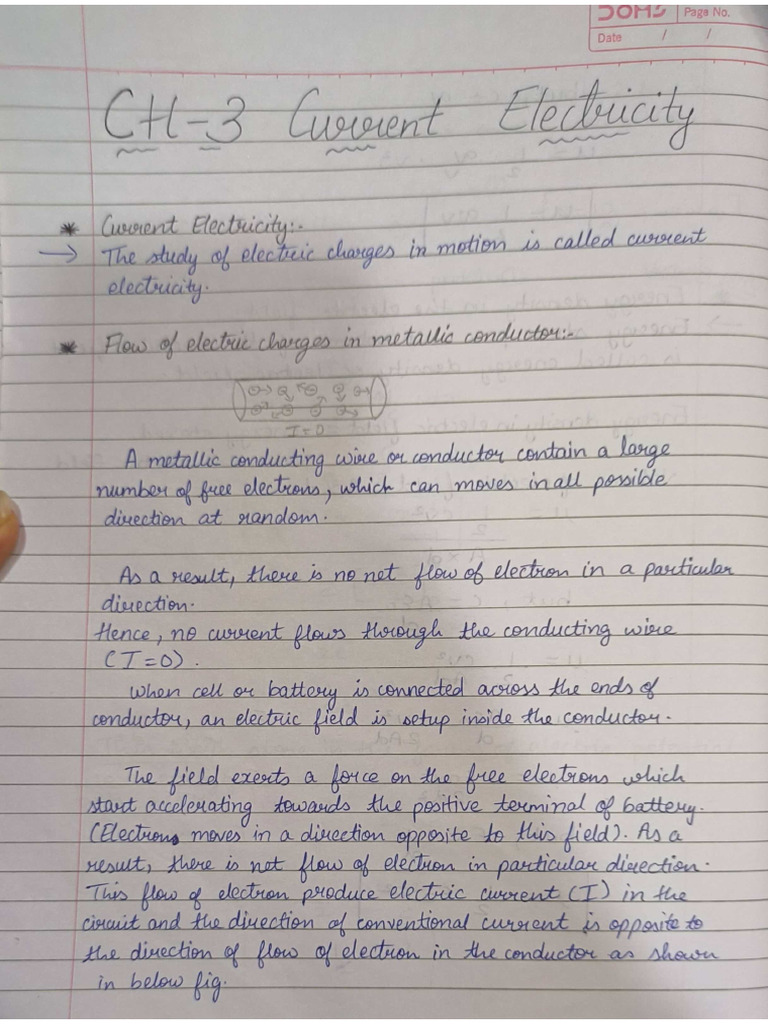 SOMS Page No.
Date / /
CH-3 Current Electricity
* Current Electricity:-
→ The study of electric charges in motion is called current
electricity.
* Flow of electric charges in metallic conductor:-
I=0
A metallic conducting wire or conductor contain a large
number of free electrons, which can moves in all possible
direction at random.
As a result, there is no net flow of electron in a particular
direction.
Hence, no current flows through the conducting wire
(I=0).
When cell or battery is connected across the ends of
conductor, an electric field is setup inside the conductor.
The field exerts a force on the free electrons which
start accelerating towards the positive terminal of battery.
(Electrons moves in a direction opposite to this field). As a
result, there is not flow of electron in particular direction.
This flow of electron produce electric current (I) in the
circuit and the direction of conventional current is opposite to
the direction of flow of electron in the conductor as shown
in below fig.